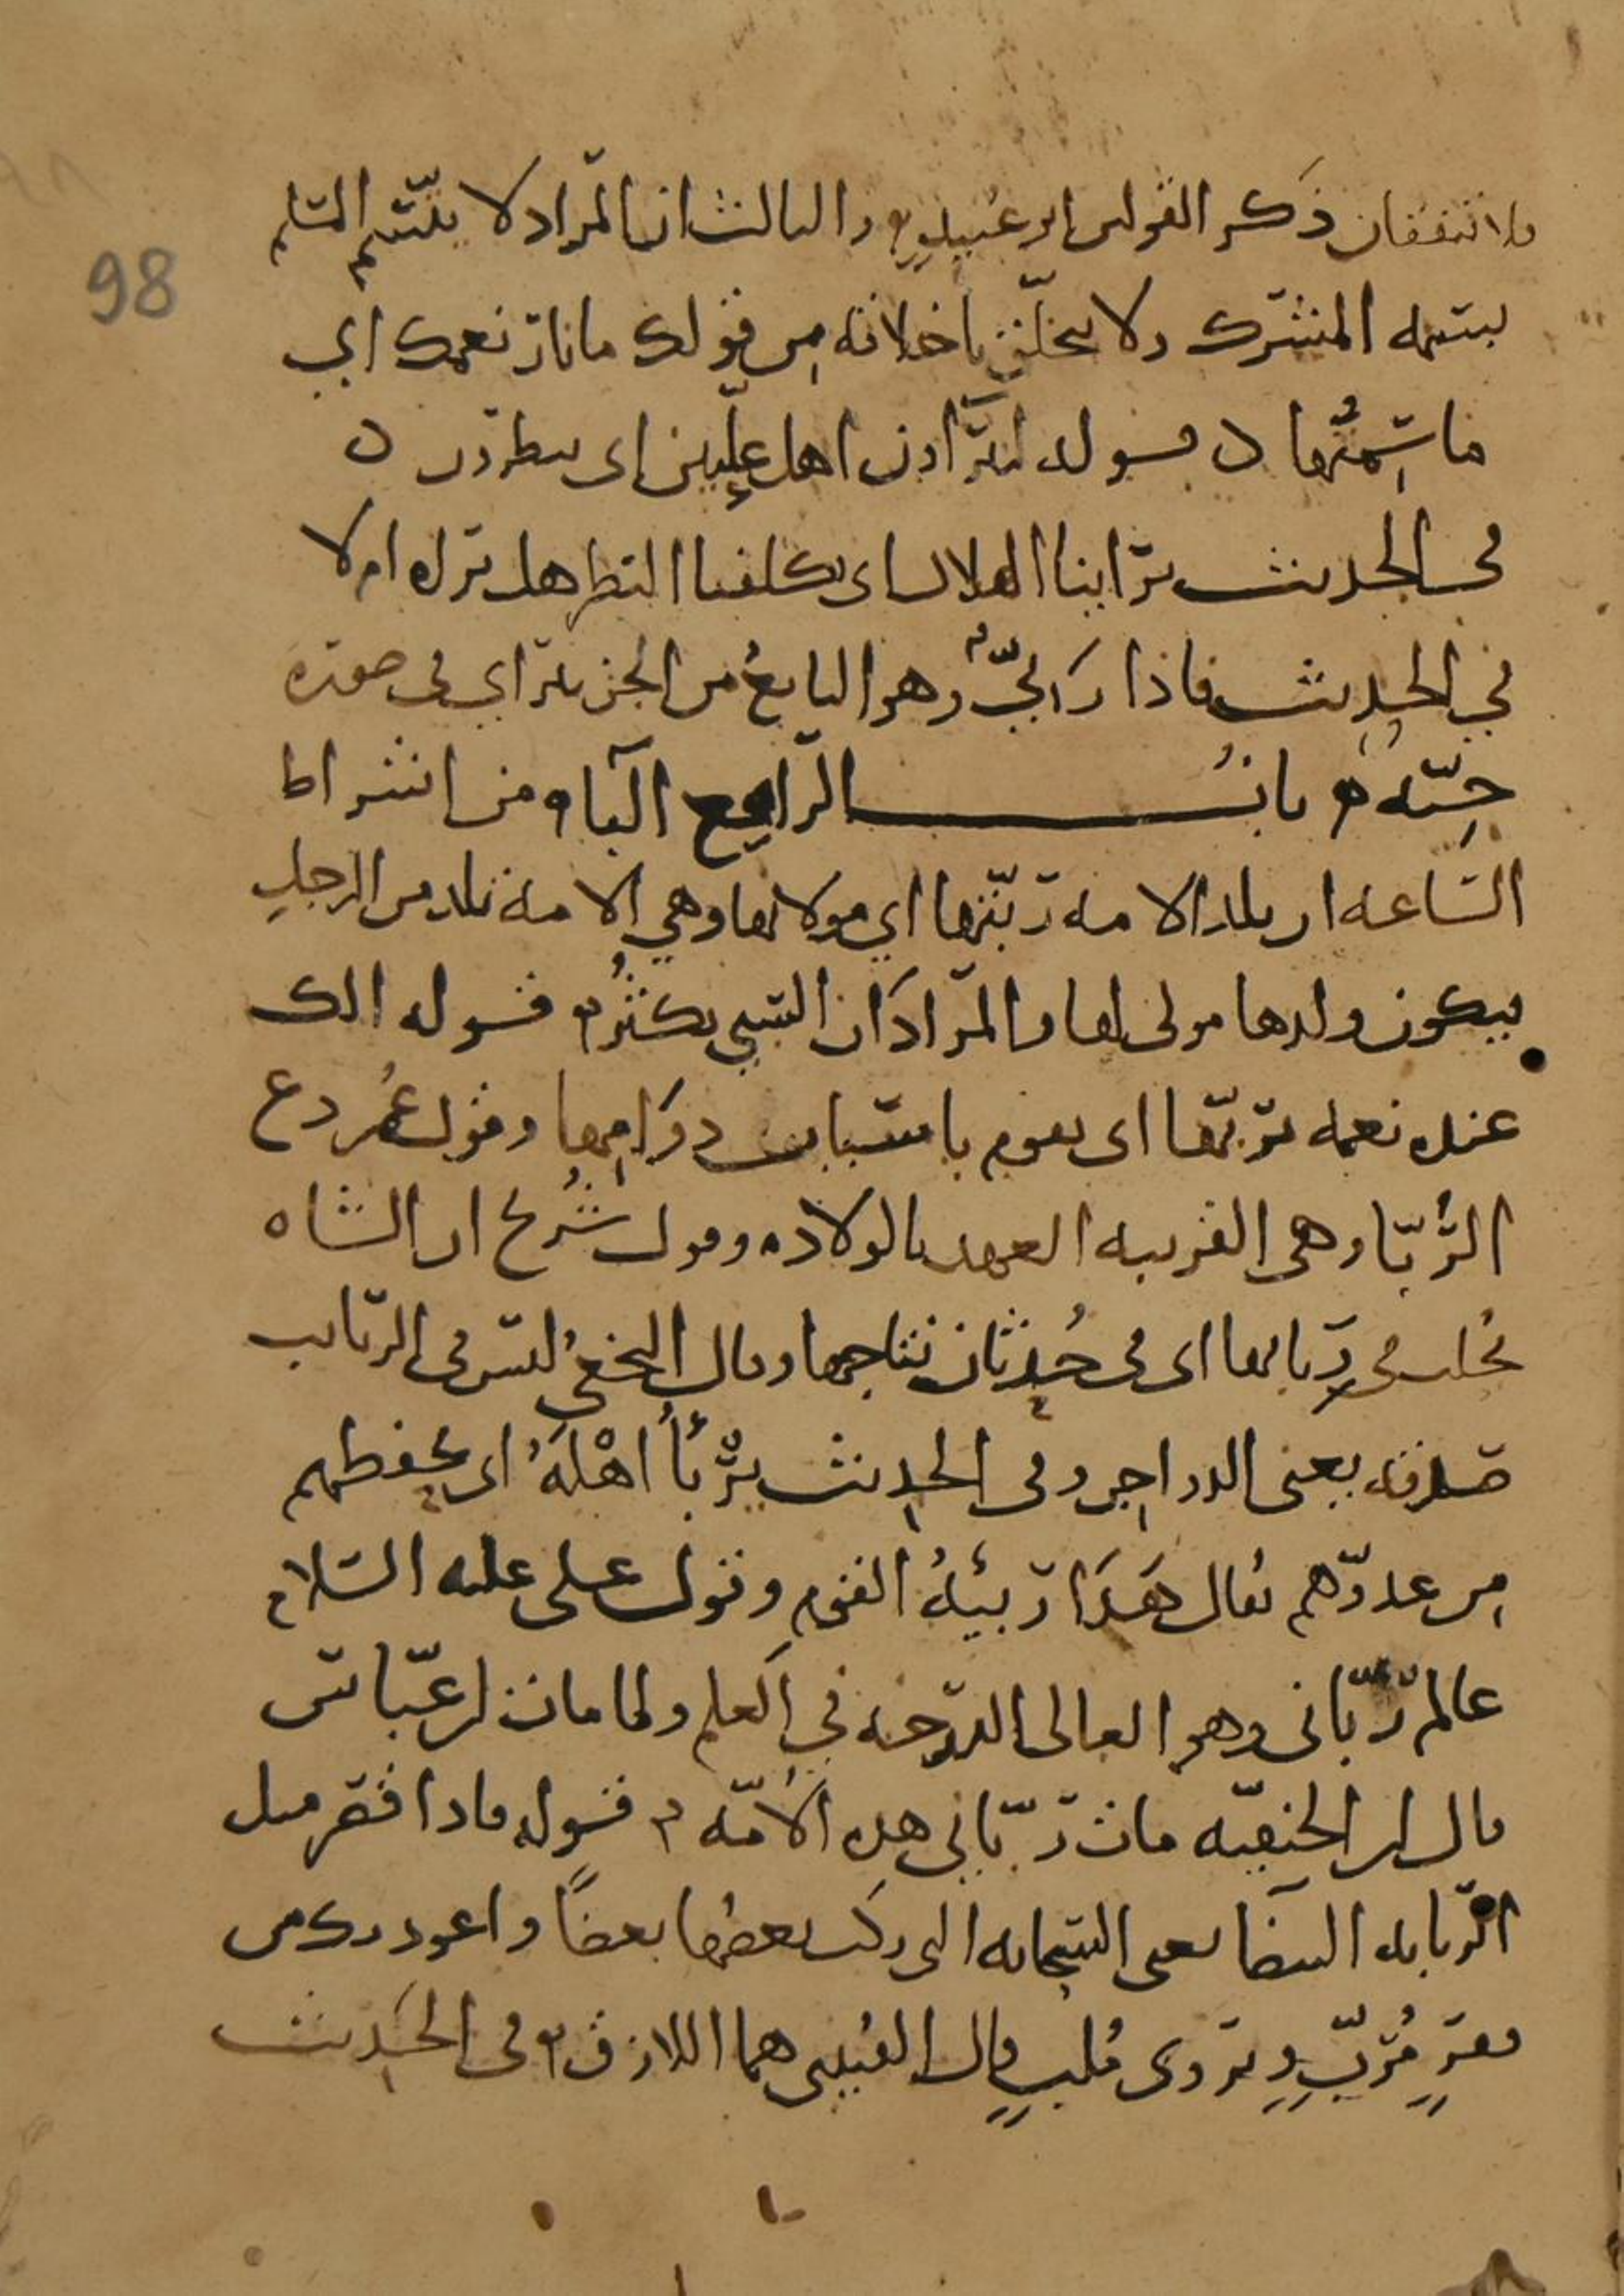 98
فلا تتفقان ذكر القولين ابو عبيدٍ والثالث ان المراد لا يتّسم المسلم
بسمة المشرك ولا يتخلّق باخلاقه من قولك ما نار نعمك اي
ما سِمَتُها قوله ليتراون اهل عليين اى ينظرون
فى الحديث تراينا الهلال اى تكلفنا النظر هل نراه ام لا
في الحديث فاذا رَئيٌّ وهو التابعُ من الجن يتراي فى صورة
حيّة باب الراء مع الباء من اشراط
السّاعه ان تلد الامه ربّتها اي مولاتها وهي الامة تلد من الرجل
فيكون ولدها مولى لها والمراد ان السبي يكثُر قوله الك
عنده نعمه تربّها اى تقوم باسباب دوامها وقول عُمر دع
الرُّبّا وهى القريبه العهد بالولاده وقول شُريح ان الشاه
تُحلب فى رِبابها اى فى حدثان نتاجها وقال النخعيُ ليس فى الربايب
صدقه يعنى الدواجن وفى الحديث يَرْبَأُ اهْلَهُ اى يحفظهم
من عدوّهم يقال هَذَا رَبيئةُ القوم وقول على عليه السّلام
عالم ربّانى وهو العالى الدّرجه في العلم ولما مات ابن عبّاس
قال ابن الحنفيّه مات ربّانى هذه الأمّه قوله فاذا قصر مثل
الرّبابه البيضا يعنى السحابه التى ركب بعضها بعضًا واعوذ بك من
فقرٍ مُرِبٍّ ويروى مُلبٍ قال القتيبى هما اللازق وفى الحديث